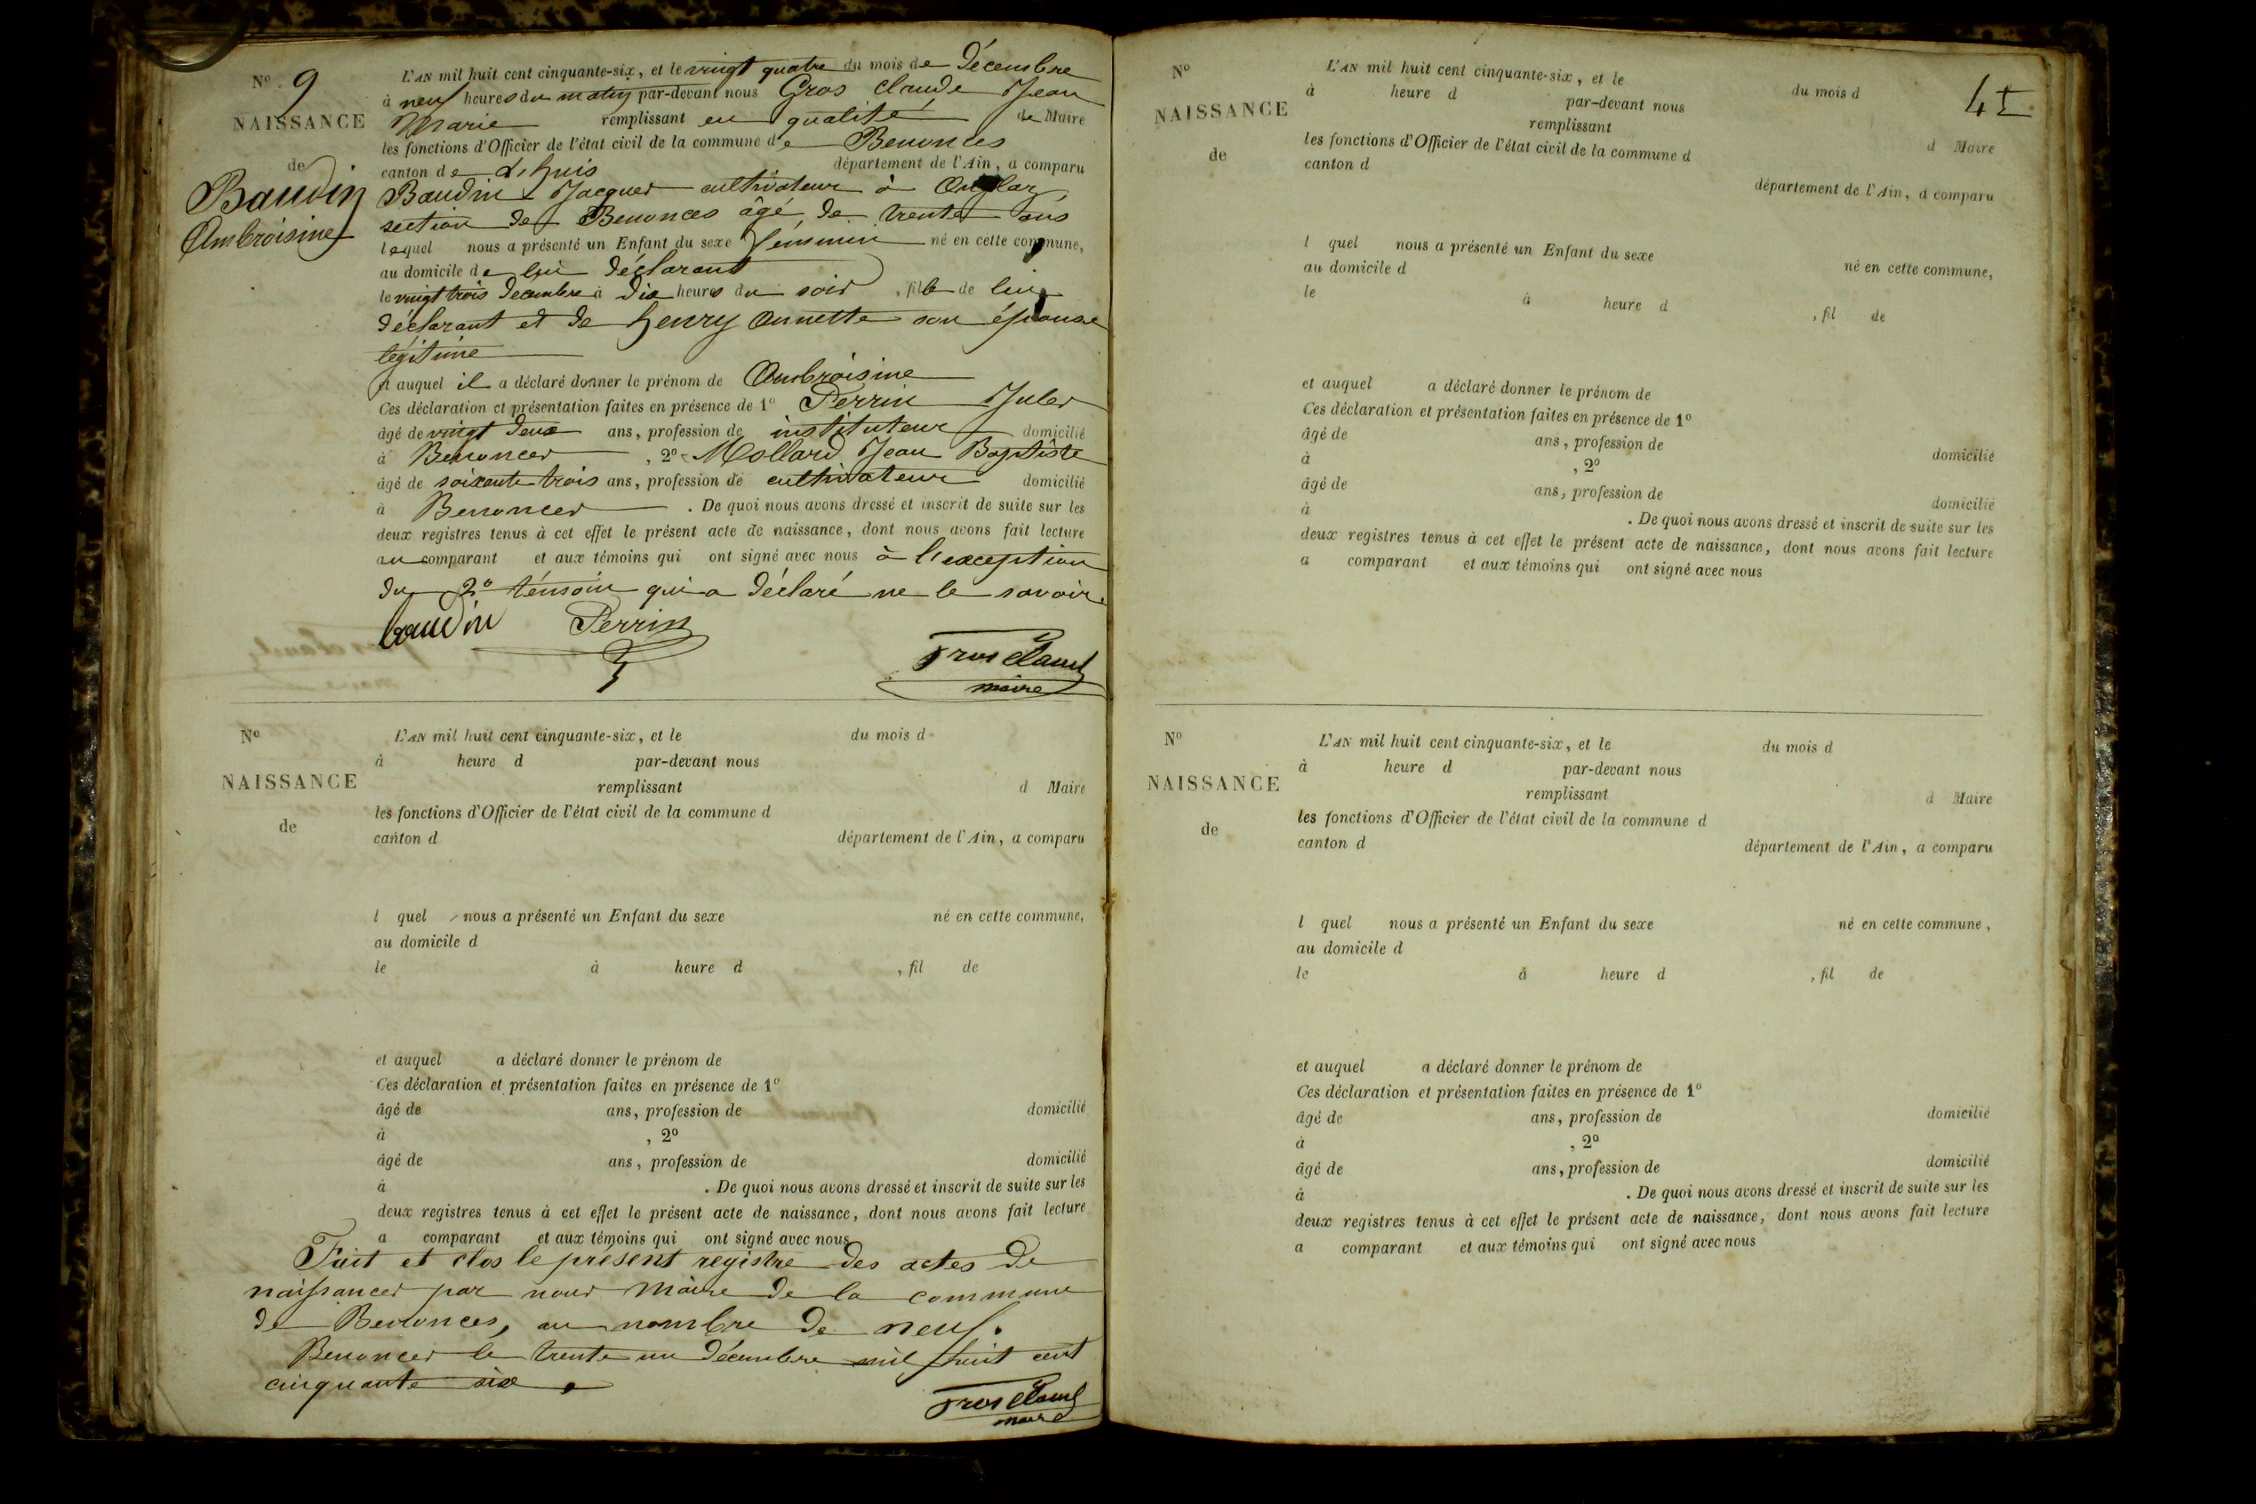 Nº 9
NAISSANCE
de
Baudin
Ambroisine
L'AN mil huit cent cinquante-six, et le vingt quatre du mois de Décembre
à neuf heures du matin par-devant nous Gros Claude Jean
Marie remplissant en qualité de Maire
les fonctions d'Officier de l'état civil de la commune de Benonces
canton de Lhuis département de l'Ain, a comparu
Baudin Jacques cultivateur à
section de Benonces âgé de trente ans
lequel nous a présenté un Enfant du sexe féminin né en cette commune,
au domicile de lui déclarant
le vingt trois Décembre à dix heures du soir, fille de lui
déclarant et de henry Annette son épouse
légitime
et auquel il a déclaré donner le prénom de Ambroisine
Ces déclaration et présentation faites en présence de 1º Perrin Jules
âgé de vingt deux ans, profession de instituteur domicilié
à Benonces, 2º Mollard Jean Baptiste
âgé de soixante trois ans, profession de cultivateur domicilié
à Benonces. De quoi nous avons dressé et inscrit de suite sur les
deux registres tenus à cet effet le présent acte de naissance, dont nous avons fait lecture
au comparant et aux témoins qui ont signé avec nous à l'exception
du 2º témoin qui a déclaré ne le savoir.
baudin Perrin
Gros Claude
maire
Nº
NAISSANCE
de
L'AN mil huit cent cinquante-six, et le du mois d
à heure d par-devant nous
remplissant d Maire
les fonctions d'Officier de l'état civil de la commune d
canton d département de l'Ain, a comparu
l quel nous a présenté un Enfant du sexe né en cette commune,
au domicile d
le à heure d , fil de
et auquel a déclaré donner le prénom de
Ces déclaration et présentation faites en présence de 1º
âgé de ans, profession de domicilié
à , 2º
âgé de ans, profession de domicilié
à . De quoi nous avons dressé et inscrit de suite sur les
deux registres tenus à cet effet le présent acte de naissance, dont nous avons fait lecture
a comparant et aux témoins qui ont signé avec nous
Fait et clos le présent registre des actes de
naissances par nous Maire de la commune
de Benonces, au nombre de neuf.
Benonces le trente un Décembre mil huit cent
cinquante six.
Gros Claude
maire
41
Nº
NAISSANCE
de
L'AN mil huit cent cinquante-six, et le du mois d
à heure d par-devant nous
remplissant d Maire
les fonctions d'Officier de l'état civil de la commune d
canton d département de l'Ain, a comparu
l quel nous a présenté un Enfant du sexe né en cette commune,
au domicile d
le à heure d , fil de
et auquel a déclaré donner le prénom de
Ces déclaration et présentation faites en présence de 1º
âgé de ans, profession de domicilié
à , 2º
âgé de ans, profession de domicilié
à . De quoi nous avons dressé et inscrit de suite sur les
deux registres tenus à cet effet le présent acte de naissance, dont nous avons fait lecture
a comparant et aux témoins qui ont signé avec nous
Nº
NAISSANCE
de
L'AN mil huit cent cinquante-six, et le du mois d
à heure d par-devant nous
remplissant d Maire
les fonctions d'Officier de l'état civil de la commune d
canton d département de l'Ain, a comparu
l quel nous a présenté un Enfant du sexe né en cette commune,
au domicile d
le à heure d , fil de
et auquel a déclaré donner le prénom de
Ces déclaration et présentation faites en présence de 1º
âgé de ans, profession de domicilié
à , 2º
âgé de ans, profession de domicilié
à . De quoi nous avons dressé et inscrit de suite sur les
deux registres tenus à cet effet le présent acte de naissance, dont nous avons fait lecture
a comparant et aux témoins qui ont signé avec nous